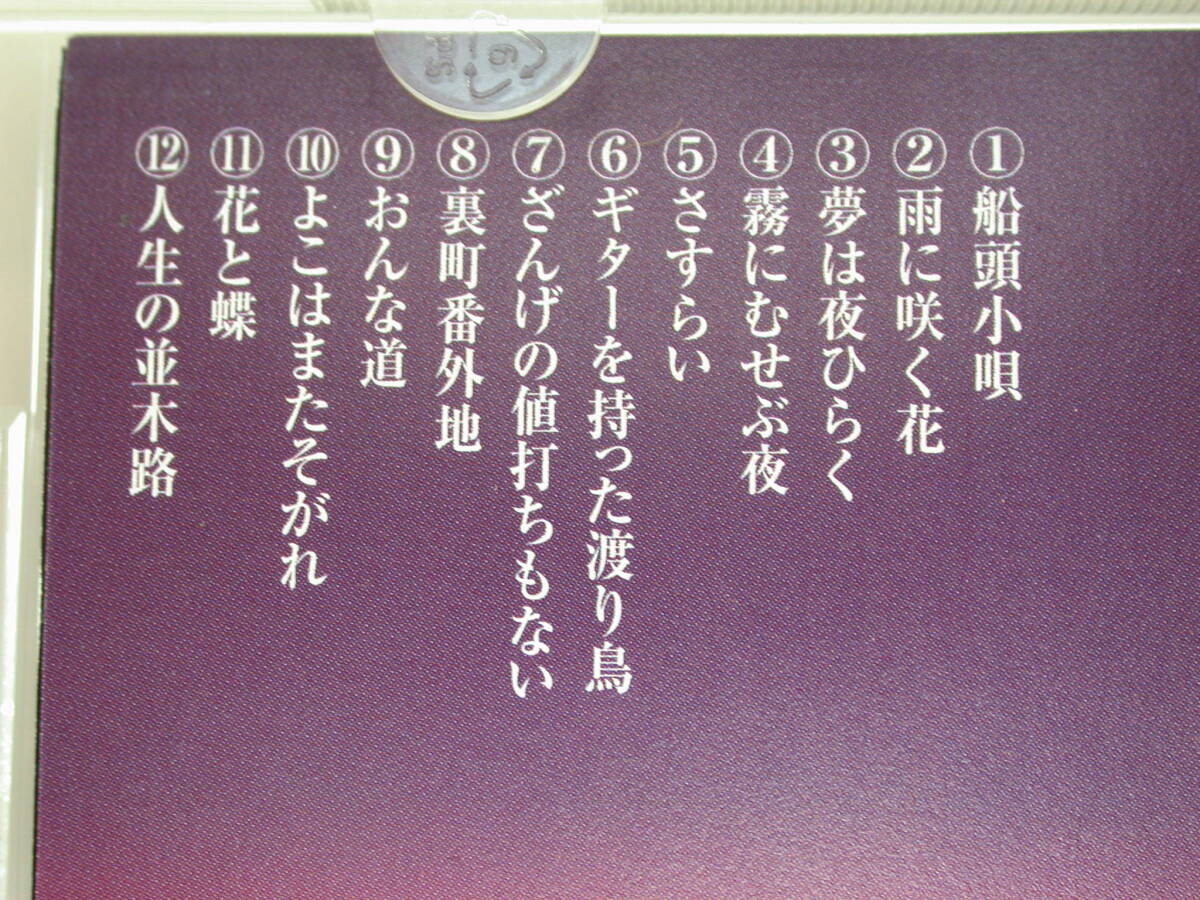 ①船頭小唄
②雨に咲く花
③夢は夜ひらく
④霧にむせぶ夜
⑤さすらい
⑥ギターを持った渡り鳥
⑦ざんげの値打ちもない
⑧裏町番外地
⑨おんな道
⑩よこはまたそがれ
⑪花と蝶
⑫人生の並木路